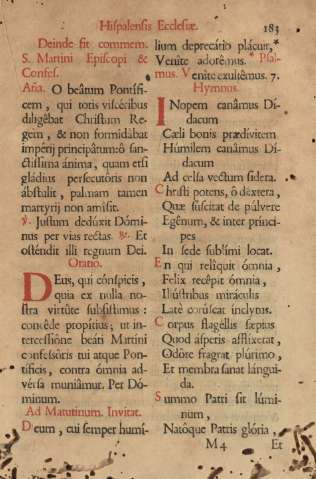 Hispalensis Ecclesiæ. 183
Deinde fit commem.
S. Martini Episcopi &
Confes.
Aña. O beâtum Pontífi-
cem, qui totis viscéribus
diligêbat Christum Re-
gem, & non formidâbat
impérij principâtum: ô san-
ctíssima ánima, quam etsi
gládius persecutôris non
ábstulit, palmam tamen
martyrij non amísit.
℣. Justum dedúxit Dómi-
nus per vias rectas. ℟. Et
osténdit illi regnum Dei.
Oratio.
DEus, qui cónspicis,
quia ex nulla no-
stra virtúte subsístimus:
concêde propítius; ut in-
tercessiône beáti Martini
confessôris tui atque Pon-
tíficis, contra ómnia ad-
vérsa muniâmur. Per Dó-
minum.
Ad Matutinum. Invitat.
Deum, cui semper humí-
lium deprecátio plácuit,*
Venite adorêmus. * Psal-
mus. Venite exultêmus. 7.
Hymnus.
INopem canâmus Di-
dacum
Cæli bonis prædívitem
Húmilem canâmus Dí-
dacum
Ad celsa vectum sídera.
Christi potens, ô déxtera,
Quæ súscitat de púlvere
Egênum, & inter princi-
pes
In sede sublími locat.
En qui relîquit ómnia,
Felix recêpit ómnia,
Illústribus miráculis
Latê corúscat inclytus.
Corpus flagéllis sæpius
Quod ásperis afflíxerat,
Odôre fragrat plúrimo,
Et membra sanat lángui-
da.
Summo Patri sit lúmi-
num,
Natôque Patris glória,
M 4 Et